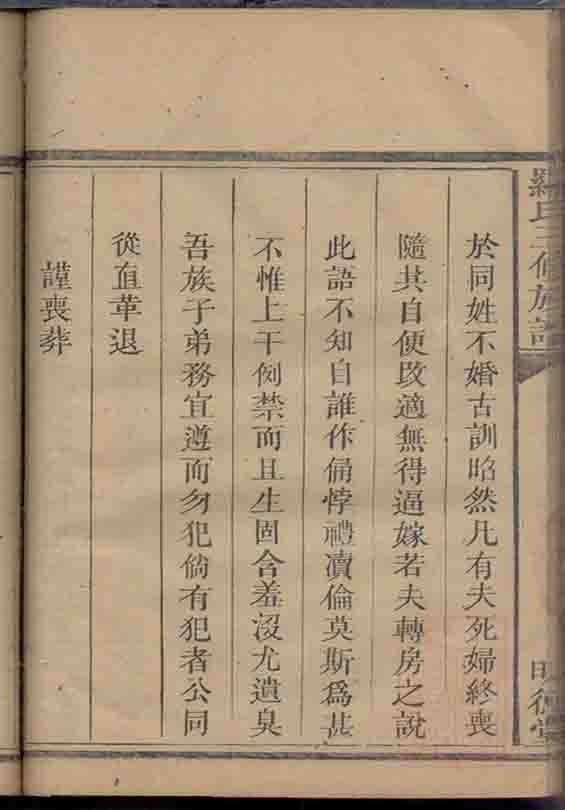 羅氏三修族譜
明德堂
於同姓不婚古訓昭然凡有夫死婦終喪
隨其自便改適無得逼嫁若夫轉房之說
此語不知自誰作俑悖禮瀆倫莫斯爲甚
不惟上干例禁而且生固含羞沒尤遺臭
吾族子弟務宜遵而勿犯倘有犯者公同
從直革退
謹喪葬